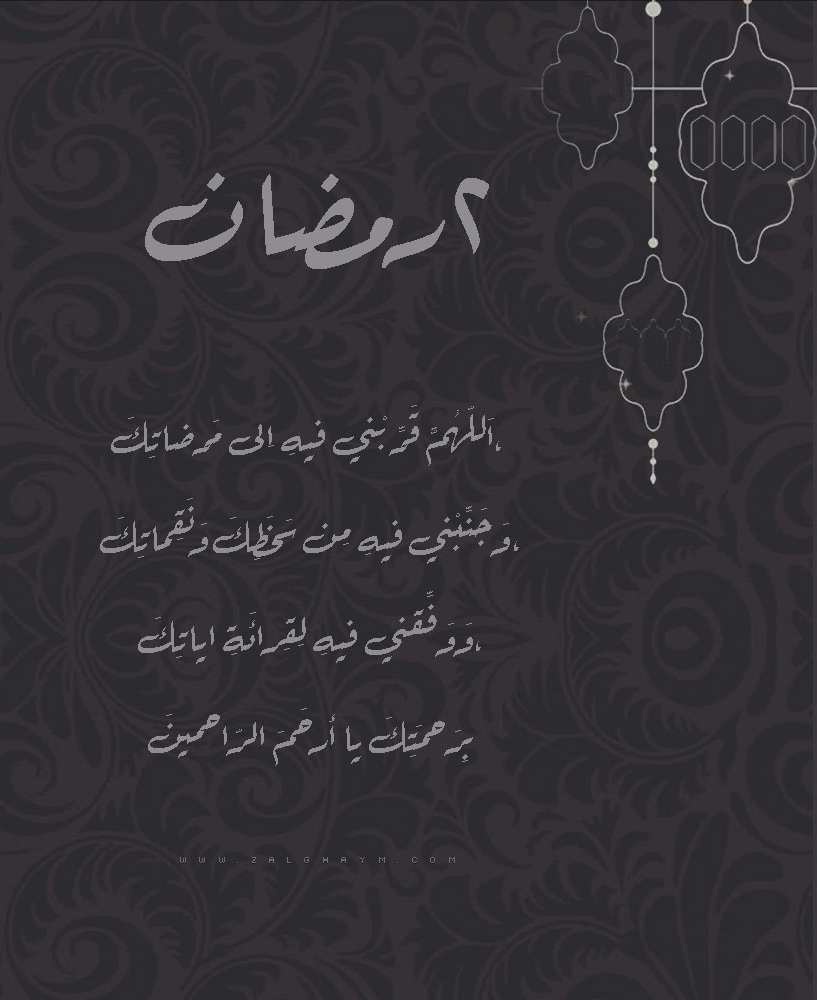 ٢رمضان
،اَللّهُمَّ قَرِّبْني فيهِ اِلى مَرضاتِكَ
،وَجَنِّبْني فيهِ مِن سَخَطِكَ وَنَقِماتِكَ
،وَوَفِّقني فيهِ لِقِرائَةِ اياتِكَ
بِرَحمَتِكَ يا أرحَمَ الرّاحمينَ
WWW.ZALGHAYM.COM